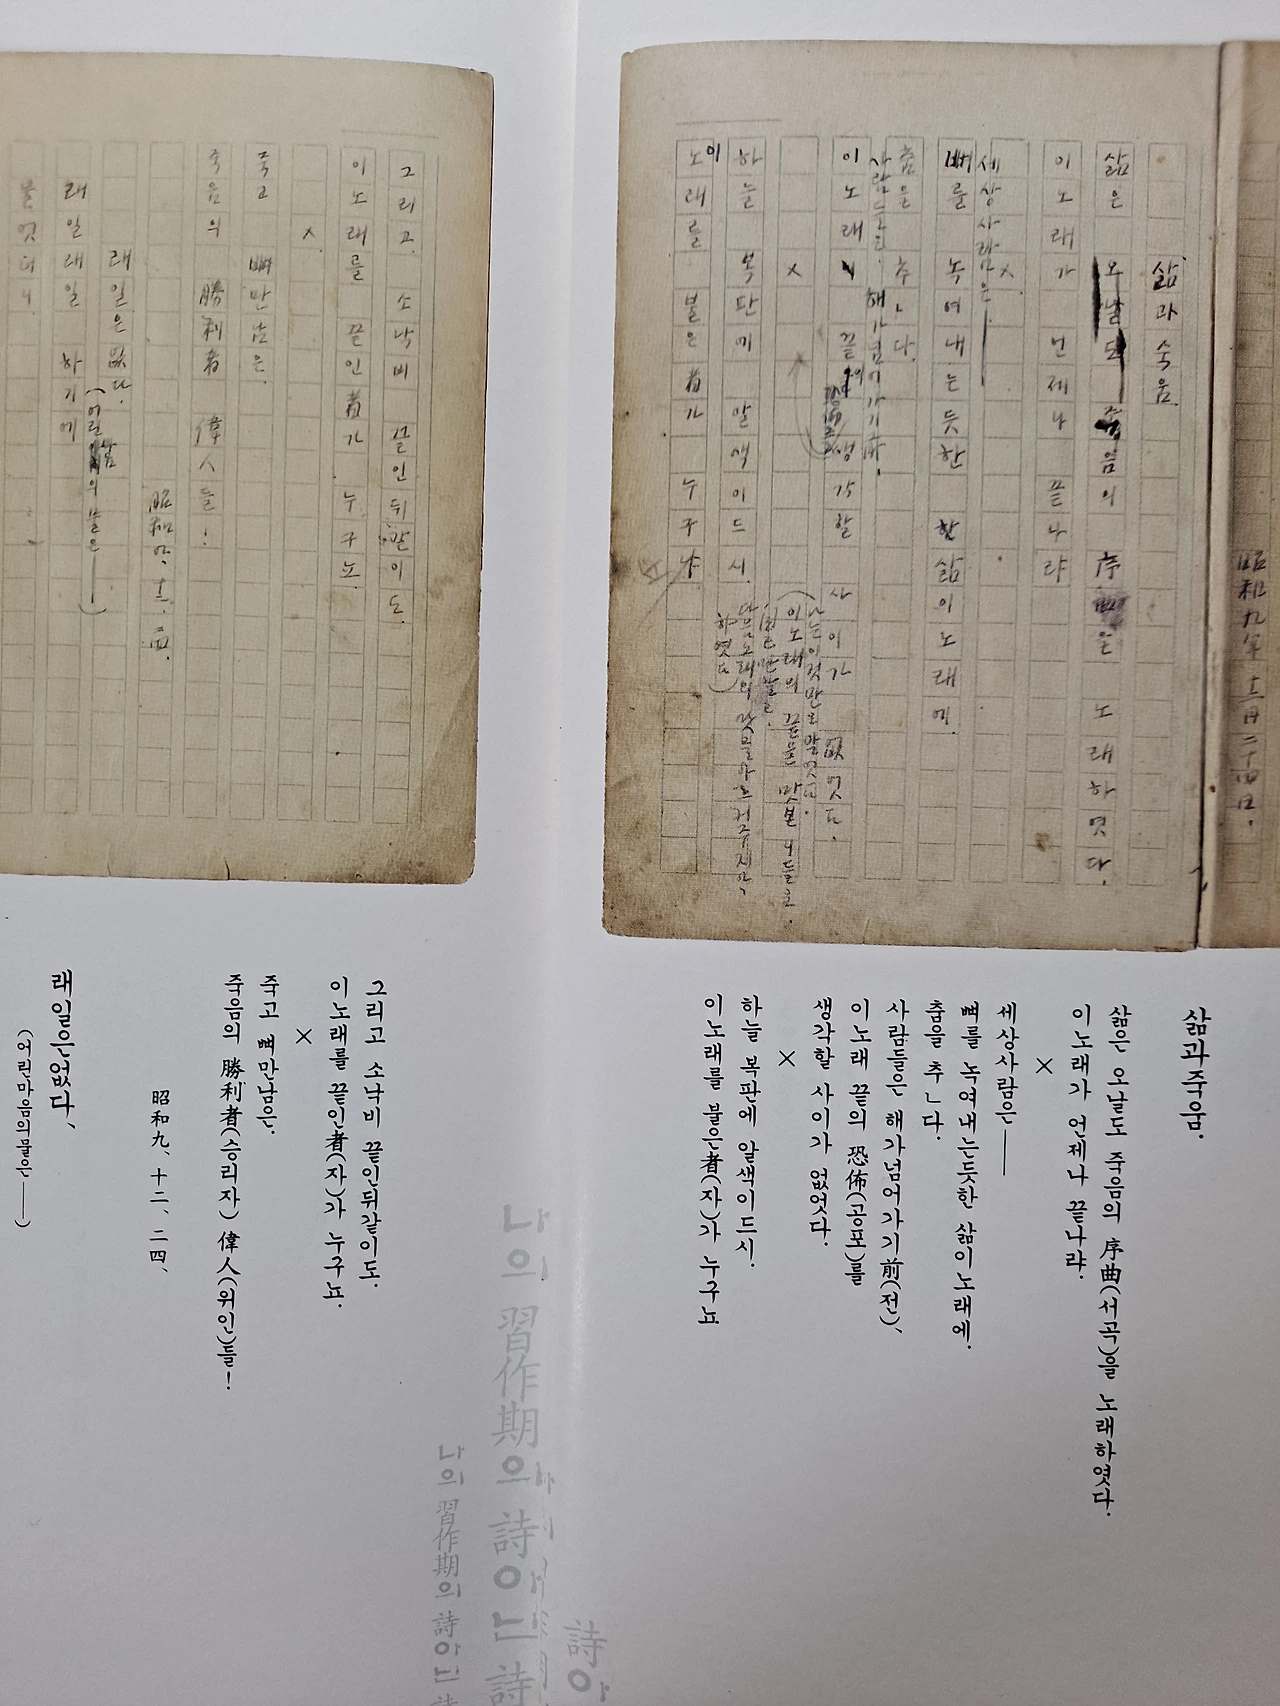 삶과죽움.
삶은 오날도 죽음의 序曲을 노래하엿다.
이노래가 언제나 끝나랴
×
세상사람은―
뼈를 녹여내는듯한 삶이노래에.
춤을 추ㄴ다.
사람들은 해가넘어가기前、
이노래 끝의 恐怖를
생각할 사이가 없엇다.
(나는이것만은알엇다.
이노래의 끝을 맛본 니들은
하엿다)
×
하늘 복단에 알색이드시.
이노래를 불은者가 누구냐
昭和九年十二月二十四日.
그리고 소낙비 끝인뒤같이도.
이노래를 끝인者가 누구뇨.
×
죽고 뼈만남은.
죽음의 勝利者 偉人들!
昭和九、十二、二四.
래일은없다.
(어린마음의물은――)
래일래일 하기에
물엇더니.
삶과죽움.
삶은 오날도 죽음의 序曲(서곡)을 노래하엿다.
이노래가 언제나 끝나랴.
×
세상사람은――
뼈를 녹여내는듯한 삶이노래에.
춤을 추ㄴ다.
사람들은 해가넘어가기前(전)、
이노래 끝의 恐怖(공포)를
생각할 사이가 없엇다.
×
하늘 복판에 알색이드시.
이노래를 불은者(자)가 누구뇨
그리고 소낙비 끝인뒤같이도.
이노래를 끝인者(자)가 누구뇨.
×
죽고 뼈만남은.
죽음의 勝利者(승리자) 偉人(위인)들!
昭和九、十二、二四、
래일은없다、
(어린마음의물은――)
詩아
나의習作期의詩아닌詩
나의習作期의詩아닌詩